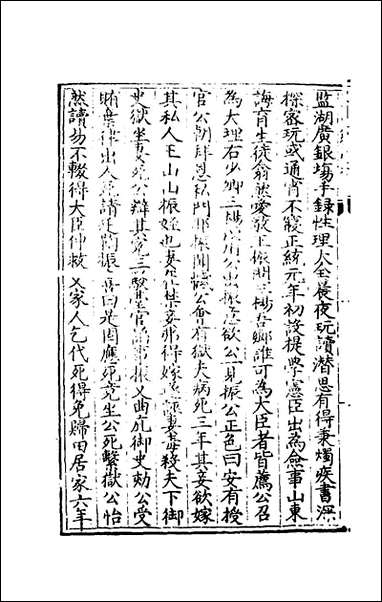 監湖廣銀場手錄性理大全晨夜玩讀潛思有得秉燭疾書深
探密玩或通宵不寢正統元年初設提學憲臣出為僉事山東
誨育生徒翕然愛敬王振問三楊吾鄉誰可為大臣者皆薦公召
為大理右少卿三楊 用公出振意欲公一見振公正色曰安有授
官公朝拜恩私門耶振聞 公會有獄夫病死三年其妾欲嫁
其私人王山山振姪也妻 妾弗得嫁 妻毒殺夫下御
史獄坐妻死公辯其冤三 官 振又曲庇御史劾公受
賄棄律出人死請廷鞫振喜曰是固應死竟坐公死繫獄公怡
然讀易不輟得大臣伸救又家人乞代死得免歸田居家六年